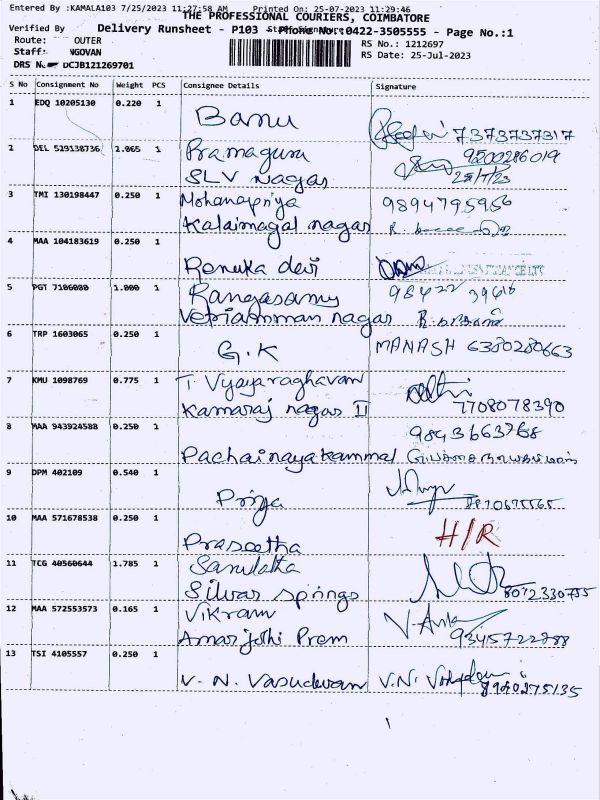 Entered By :KAMALA103 7/25/2023 11:27:58 AM Printed On: 25-07-2023 11:29:46
THE PROFESSIONAL COURIERS, COIMBATORE
Verified By Delivery Runsheet - P103 - Phone No.:0422-3505555 - Page No.:1
Route: OUTER RS No.: 1212697
Staff: NGOVAN RS Date: 25-Jul-2023
DRS DCJB121269701
S No Consignment No Weight PCS Consignee Details Signature
1 EDQ 10205130 0.220 1 Banu 7373737317
2 DEL 519138736 1.065 1 Pramaguru 9500286019
SLV Nagar 25/7/23
3 TMI 130198447 0.250 1 Mohanapriya 9894795956
Kalaimagal nagar
4 MAA 104183619 0.250 1
Renuka devi
5 PGT 7106080 1.000 1 Rangasamy 98422 39616
Vetriamman nagar
6 TRP 1603065 0.250 1 G.K MANASH 6380280663
7 KMU 1098769 0.775 1 T. Vijayaraghavan
Kamaraj nagar II 7708078390
8 MAA 943924588 0.250 1 9843663768
Pachainayakammal பச்சைநாயகம்மாள்
9 DPM 402109 0.540 1
Priya
10 MAA 571678538 0.250 1 H/R
Praseetha
11 TCG 40560644 1.785 1
Silver Springs 8072330755
12 MAA 572553573 0.165 1 Vikram
Amarjothi Prem 9345722788
13 TSI 4105557 0.250 1
V. N. Vasudevan V.N.